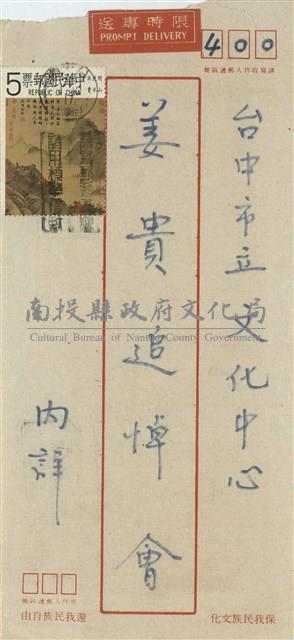 限時專送
PROMPT DELIVERY
400
請寫收件人郵遞區號
中華民國郵票
5
REPUBLIC OF CHINA
台中市立文化中心
姜貴追悼會
內詳
南投縣政府文化局
Cultural Bureau of Nantou County Government
寄件人郵遞區號
還我民族自由
保我民族文化